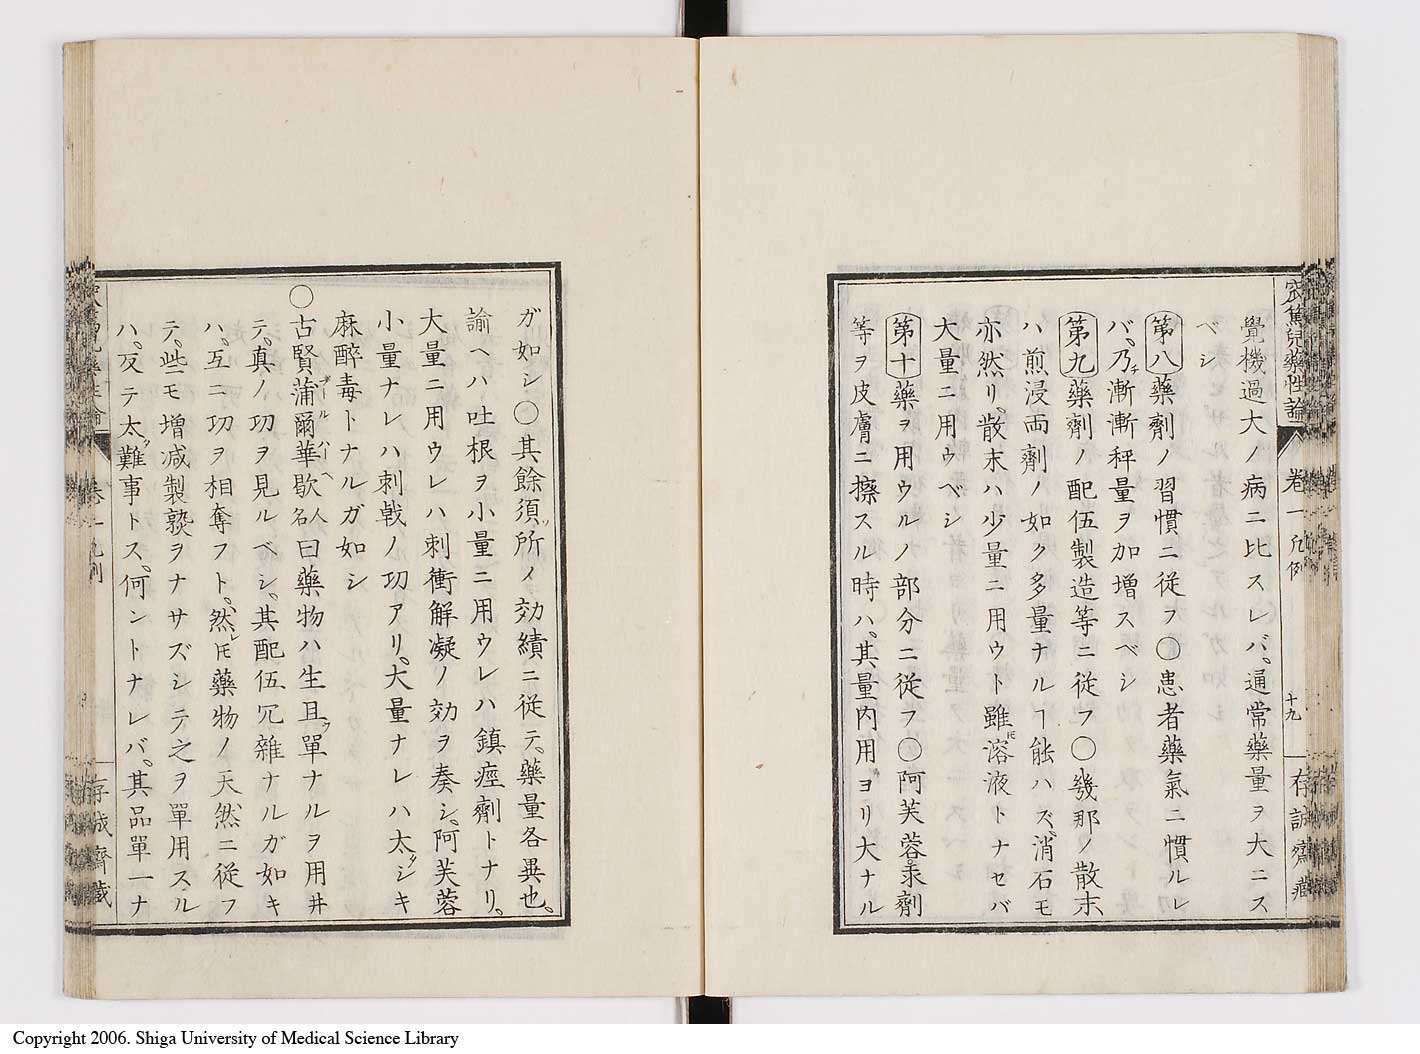 覺機過大ノ病ニ比スレバ、通常藥量ヲ大ニス
ベシ
第八藥劑ノ習慣ニ従フ〇患者藥氣ニ慣ルレ
バ、乃チ漸漸秤量ヲ加増スベシ
第九藥劑ノ配伍製造等ニ従フ〇幾那ノ散末
ハ煎浸両劑ノ如ク多量ナルヿ能ハズ、消石モ
亦然リ、散末ハ少量ニ用ウト雖𪜈溶液トナセバ
大量ニ用ウベシ
第十藥ヲ用ウルノ部分ニ従フ〇阿芙蓉汞劑
等ヲ皮膚ニ擦スル時ハ、其量内用ヨリ大ナル
卷一凡例
十九
存誠齋藏
ガ如シ〇其餘須ツ所ノ効績ニ従テ、藥量各異也、
諭ヘハ吐根ヲ小量ニ用ウレハ鎮痙劑トナリ、
大量ニ用ウレハ刺衝解凝ノ効ヲ奏シ、阿芙蓉
小量ナレハ刺戟ノ功アリ、大量ナレハ太シキ
麻醉毒トナルガ如シ
〇古賢蒲爾華歇人名曰藥物ハ生且ツ單ナルヲ用井
テ、真ノ功ヲ見ルベシ、其配伍冗雜ナルガ如キ
ハ、互ニ功ヲ相奪フト、然レ𪜈藥物ノ天然ニ従フ
テ、些モ増減製𤍨ヲナサズシテ之ヲ單用スル
ハ、反テ太難事トス、何ントナレバ、其品單一ナ
存誠齋藏